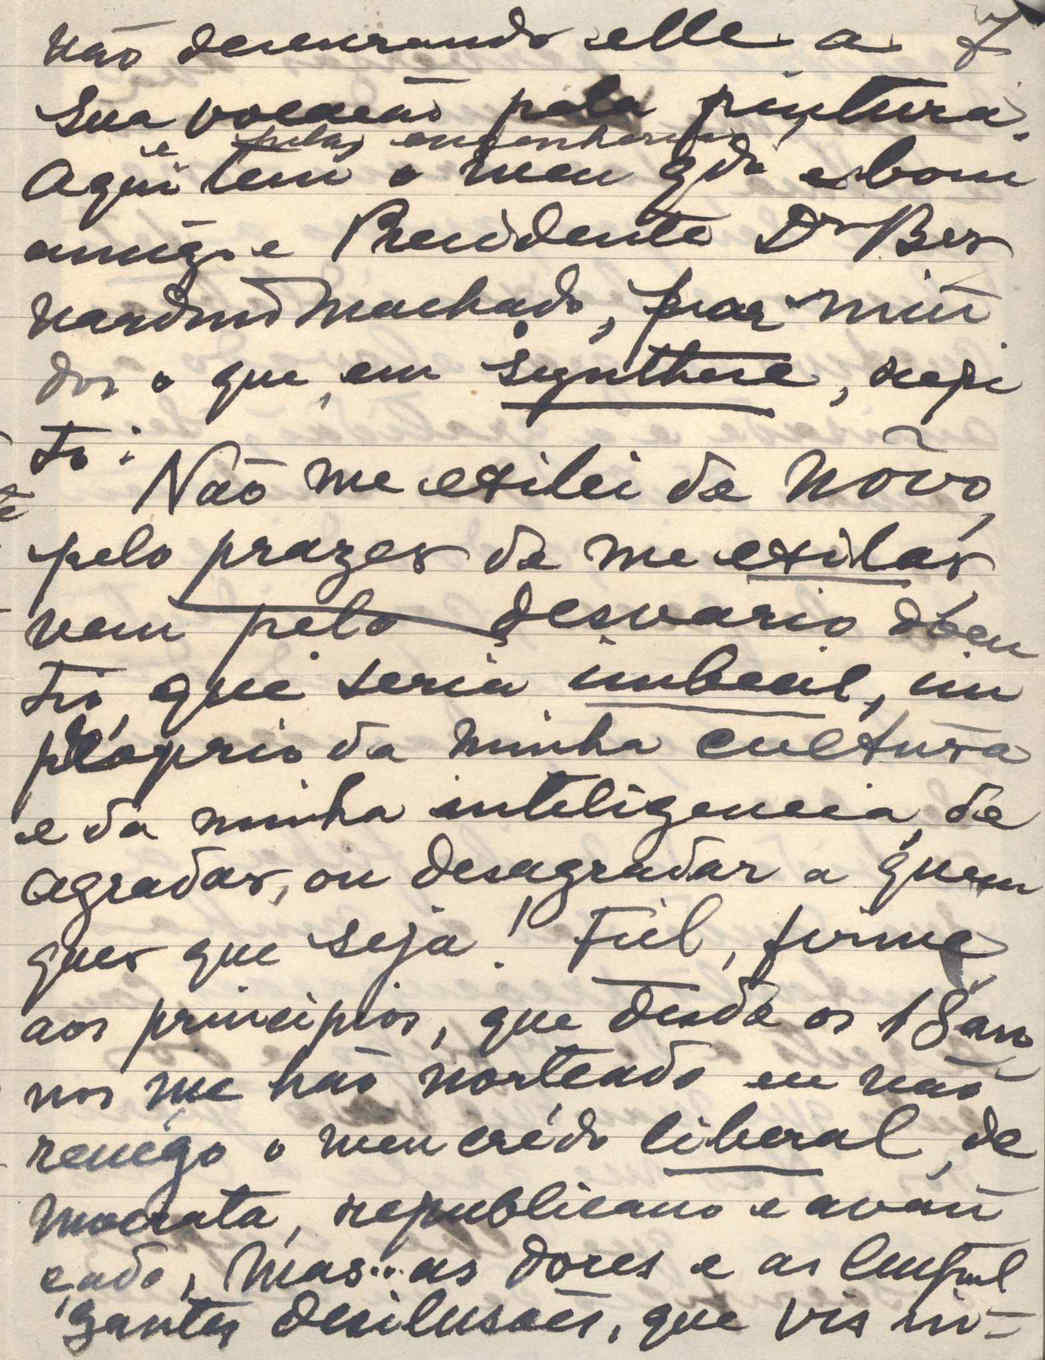 7
não desenrando elle a
sua vocação pela pintura
e pelas engenharias
Aqui tem o meu gdo e bom
amigo e Presidente Dr Ber
nardino Machado, por miu
dos o que, em synthese, repi
to:
Não me exilei de nôvo,
pelo prazer de me exilar
nem pelo desvario doen
tio, que seria imbecil, im
próprio da minha cultura
e da minha inteligencia, de
agradar, ou desagradar a quem
quer que seja! Fiel, firme
aos principios, que desde os 18 an
nos me hão norteado eu não
renégo o meu crédo liberal, de
mocrata, republicano e avan
çado, mas.. as dores e as
desilusões, que vis in-